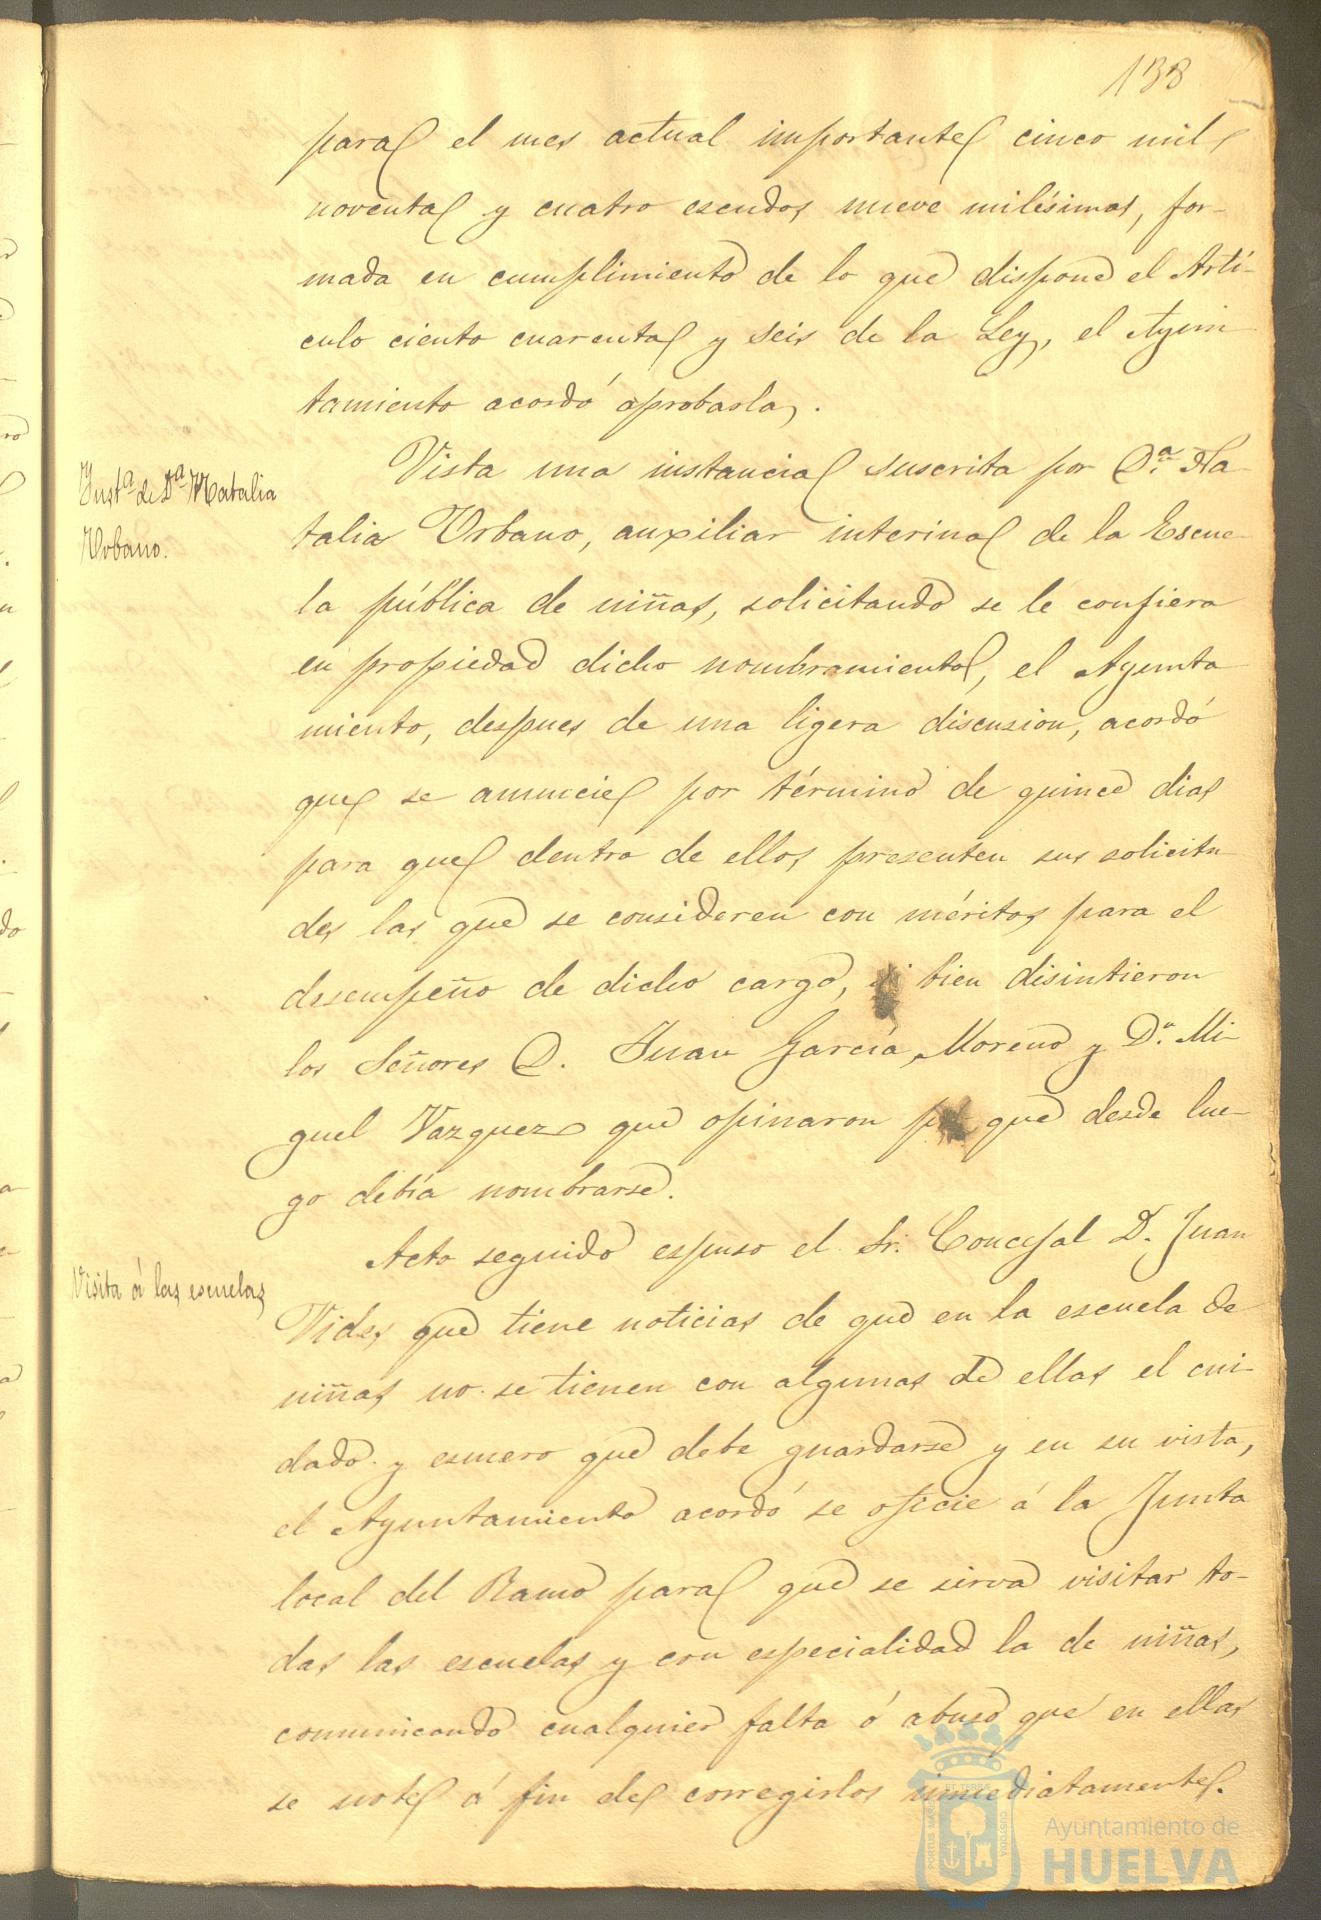 138
para el mes actual importante cinco mil
noventa y cuatro escudos nueve milésimas, for-
mada en cumplimiento de lo que dispone el Artí-
culo ciento cuarenta y seis de la Ley, el Ayun
tamiento acordó aprobarla.
Inst.ª de D.ª Natalia
Urbano.
Vista una instancia suscrita por D.ª Na-
talia Urbano, auxiliar interina de la Escue-
la pública de niñas, solicitando se le confiera
en propiedad dicho nombramiento, el Ayunta
miento, despues de una ligera discusion, acordó
que se anuncie por término de quince dias
para que dentro de ellos presenten sus solicitu
des las que se consideren con méritos para el
desempeño de dicho cargo, si bien disintieron
los Señores D. Juan García Moreno y D.n Mi-
guel Vazquez que opinaron por que desde lue-
go debía nombrarse.
Visita á las escuelas
Acto seguido espuso el Sr. Concejal D. Juan
Vides que tiene noticias de que en la escuela de
niñas no se tienen con algunas de ellas el cui-
dado y esmero que debe guardarse y en su vista,
el Ayuntamiento acordó se oficie á la Junta
local del Ramo para que se sirva visitar to-
das las escuelas y con especialidad la de niñas,
comunicando cualquier falta ó abuso que en ellas
se note á fin de corregirlos inmediatamente.
Ayuntamiento de
HUELVA